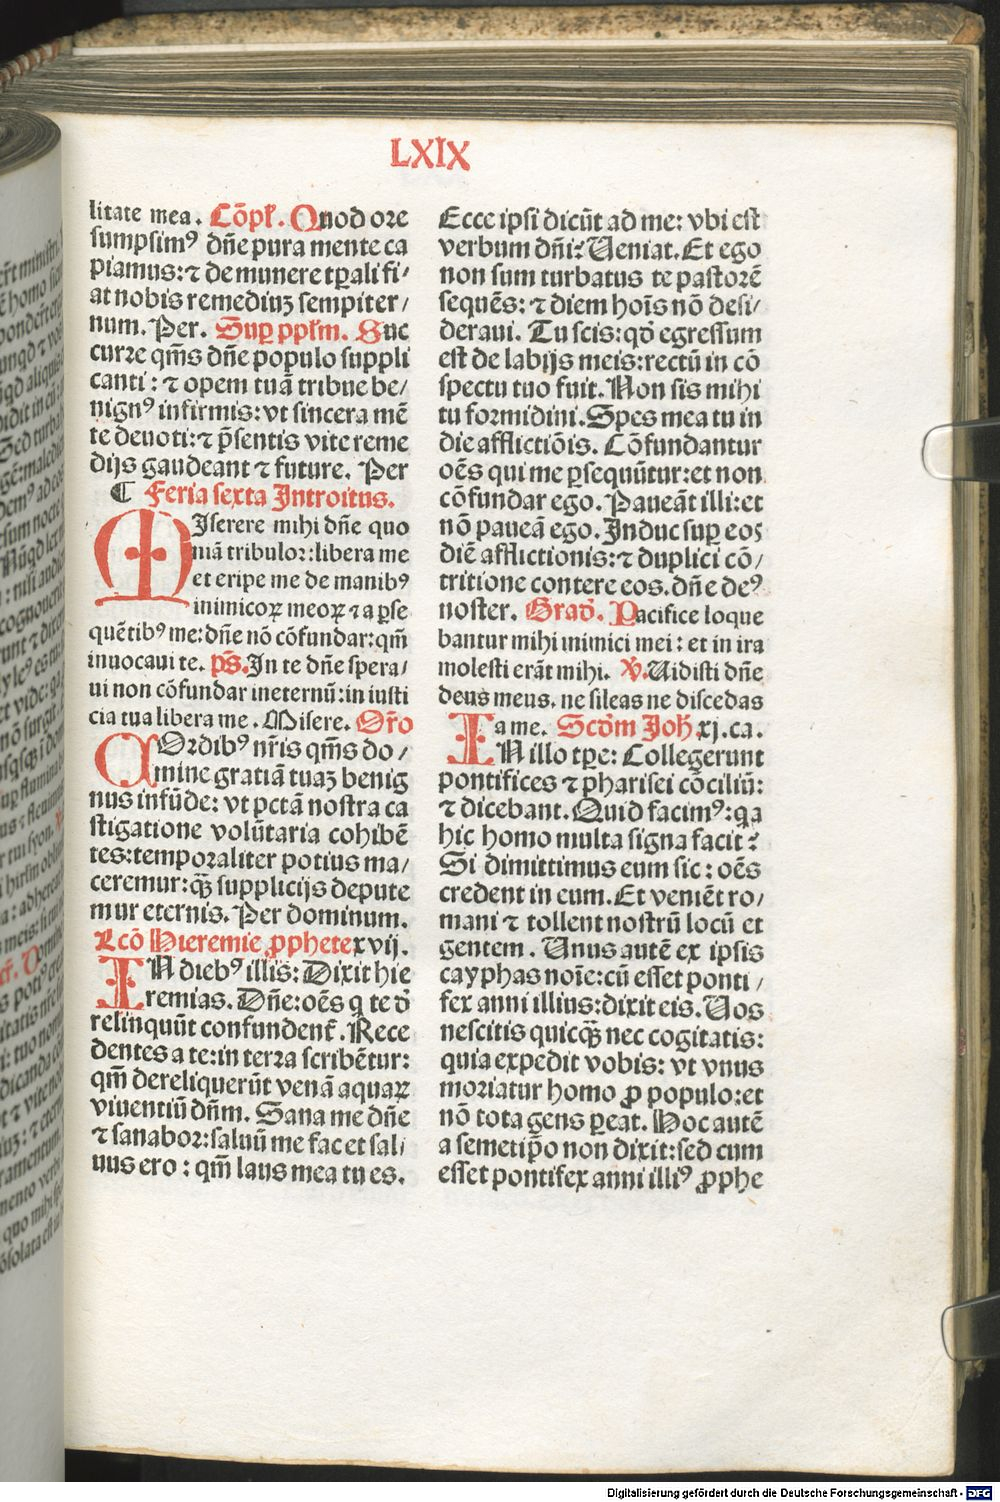 LXIX
litate mea. Cōpƚ. Quod ore
sumpsimꝰ dn̄e pura mente ca
piamus: ⁊ de munere tꝑali fi⸗
at nobis remediuꝫ sempiter⸗
num. Per. Suꝑ ppƚm. Suc
curre qm̄s dn̄e populo suppli
canti: ⁊ opem tuā tribue be⸗
nignꝰ infirmis: vt sincera mē
te deuoti: ⁊ p̄sentis vite reme
dijs gaudeant ⁊ future. Per
¶ Feria sexta Introitus.
MIserere mihi dn̄e quo
niā tribulor: libera me
et eripe me de manibꝰ
inimicoꝝ meoꝝ ⁊ a ꝑse
quētibꝰ me: dn̄e nō cōfundar: qm̄
inuocaui te. ps̄. In te dn̄e spera⸗
ui non cōfundar ineternū: in iusti
cia tua libera me. Misere. Or̄o
COrdibꝰ nr̄is qm̄s do⸗
mine gratiā tuaꝫ benig
nus infūde: vt pctān̄ nostra ca
stigatione volūtaria cohibē
tes: temporaliter potius ma⸗
ceremur: qꝫ supplicijs depute
mur eternis. Per dominum.
Lcō Hieremie ꝓphete xvij.
IN diebꝰ illis: Dixit hie
remias. Dn̄e: oēs q te d̄
relinquūt confundent̄. Rece
dentes a te: in terra scribētur:
qm̄ dereliquerūt venā aquaꝝ
viuentiū dn̄m. Sana me dn̄e
⁊ sanabor: saluū me fac et sal⸗
uus ero: qm̄ laus mea tu es.
Ecce ipsi dicūt ad me: vbi est
verbum dn̄i? Ueniat. Et ego
non sum turbatus te pastorē
sequēs: ⁊ diem hoīs nō desi⸗
deraui. Tu scis: qō egressum
est de labijs meis: rectū in cō
spectu tuo fuit. Non sis mihi
tu formidini. Spes mea tu in
die afflictiōis. Cōfundantur
oēs qui me ꝑsequūtur: et non
cōfundar ego. Paueāt illi: et
nō paueā ego. Induc suꝑ eos
diē afflictionis: ⁊ duplici cō⸗
tritione contere eos. dn̄e deꝰ
noster. Grad̄. Pacifice loque
bantur mihi inimici mei: et in ira
molesti erāt mihi. v̄. Uidisti dn̄e
deus meus. ne sileas ne discedas
a me. Scd̄m Joh̄. xj. ca.
IN illo tꝑe: Collegerunt
pontifices ⁊ pharisei cōciliū:
⁊ dicebant. Quid facimꝰ: qa
hic homo multa signa facit?
Si dimittimus eum sic: oēs
credent in eum. Et veniēt ro⸗
mani ⁊ tollent nostrū locū et
gentem. Unus autē ex ipsis
cayphas noīe: cū esset ponti⸗
fex anni illius: dixit eis. Uos
nescitis quicqꝫ nec cogitatis:
quia expedit vobis: vt vnus
moriatur homo ꝓ populo: et
nō tota gens ꝑeat. Hoc autē
a semetip̄o non dixit: sed cum
esset pontifex anni illiꝰ ꝓphe
Digitalisierung gefördert durch die Deutsche Forschungsgemeinschaft - DFG